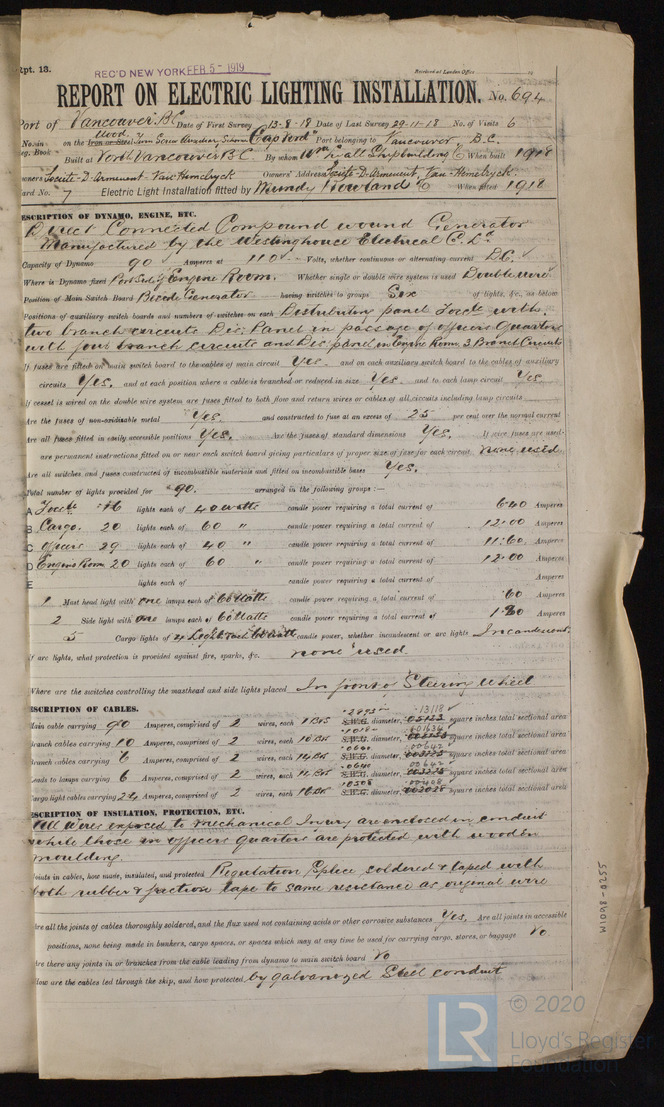 Rpt. 13.
REC'D NEW YORK FEB 5 - 1919
Received at London Office
REPORT ON ELECTRIC LIGHTING INSTALLATION. No. 694
Port of Vancouver. B.C. Date of First Survey 13-8-18 Date of Last Survey 29-11-18 No. of Visits 6
No. in on the Iron or Steel Wood. Screw "Cap Nord" Port belonging to Vancouver B.C.
Reg. Book Built at North Vancouver B.C. By whom Wm Lyall Shipbuilding Co When built 1918
Owners Societe-D-Armement Owners' Address Societe-D-Armement,
Yard No. 7 Electric Light Installation fitted by Mundy Rowland Co When fitted 1918
DESCRIPTION OF DYNAMO, ENGINE, ETC.
Direct Connected Compound wound Generator
Manufactured by the Westinghouse Electrical C. Ld.
Capacity of Dynamo 90 Amperes at 110 Volts, whether continuous or alternating current D.C.
Where is Dynamo fixed Port Side of Engine Room. Whether single or double wire system is used Double wire
Position of Main Switch Board Beside Generator having switches to groups Six of lights, &c., as below
Positions of auxiliary switch boards and numbers of switches on each Distributing panel Focsle with
two branch circuits Dis. Panel in passage of officers Quarters
with four branch circuits and Dis panel in Engine Room 3 Branch Circuits
If fuses are fitted on main switch board to the cables of main circuit Yes and on each auxiliary switch board to the cables of auxiliary
circuits Yes. and at each position where a cable is branched or reduced in size Yes and to each lamp circuit Yes
If vessel is wired on the double wire system are fuses fitted to both flow and return wires or cables of all circuits including lamp circuits
Are the fuses of non-oxidizable metal Yes. and constructed to fuse at an excess of 25 per cent over the normal current
Are all fuses fitted in easily accessible positions Yes. Are the fuses of standard dimensions Yes. If wire fuses are used
are permanent instructions fitted on or near each switch board giving particulars of proper size of fuse for each circuit none used
Are all switches and fuses constructed of incombustible materials and fitted on incombustible bases Yes.
Total number of lights provided for 90. arranged in the following groups :—
A Focsle 16 lights each of 40 watts candle power requiring a total current of 6.40 Amperes
B Cargo. 20 lights each of 60 " candle power requiring a total current of 12.00 Amperes
C Officers 29 lights each of 40 " candle power requiring a total current of 11.60 Amperes
D Engine Room 20 lights each of 60 " candle power requiring a total current of 12.00 Amperes
E lights each of candle power requiring a total current of Amperes
1 Mast head light with one lamps each of 60 Watts candle power requiring a total current of .60 Amperes
2 Side light with one lamps each of 60 Watts candle power requiring a total current of Amperes
5 Cargo lights of 4 Lights each 60 watt candle power, whether incandescent or arc lights Incandescent.
If arc lights, what protection is provided against fire, sparks, &c. none used.
Where are the switches controlling the masthead and side lights placed In front of Steering Wheel
DESCRIPTION OF CABLES.
Main cable carrying 90 Amperes, comprised of 2 wires, each 1 BS S.W.G. diameter, .13118 square inches total sectional area
Branch cables carrying 10 Amperes, comprised of 2 wires, each S.W.G. diameter, square inches total sectional area
Branch cables carrying 6 Amperes, comprised of 2 wires, each 14 BS S.W.G. diameter, square inches total sectional area
Leads to lamps carrying 6 Amperes, comprised of 2 wires, each 14 BS S.W.G. diameter, square inches total sectional area
Cargo light cables carrying 24 Amperes, comprised of 2 wires, each 16 BS S.W.G. diameter, square inches total sectional area
DESCRIPTION OF INSULATION, PROTECTION, ETC.
All wires exposed to mechanical Injury are enclosed in conduit
while those in officers quarters are protected with wooden
moulding.
Joints in cables, how made, insulated, and protected Regulation Splice soldered & taped with
both rubber & friction tape to same resistance as original wire
Are all the joints of cables thoroughly soldered, and the flux used not containing acids or other corrosive substances Yes. Are all joints in accessible
positions, none being made in bunkers, cargo spaces, or spaces which may at any time be used for carrying cargo, stores, or baggage No
Are there any joints in or branches from the cable leading from dynamo to main switch board No
How are the cables led through the ship, and how protected by galvanized Steel conduit
W1098-0255
LR © 2020
Lloyd's Register
Foundation